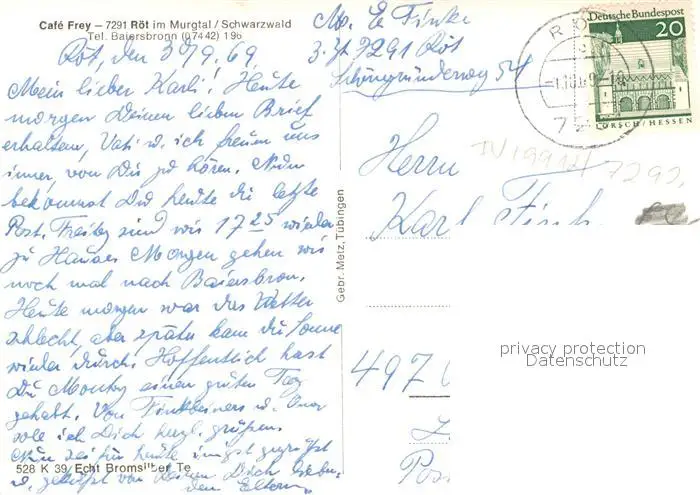 Café Frey – 7291 Röt im Murgtal / Schwarzwald
Tel. Baiersbronn (07442) 196
Röt, den 30/9. 69
Mein lieber Karli! Heute
morgen Deinen lieben Brief
erhalten, Vati u. ich freuen uns
immer, von Dir zu hören. Nun
bekommst Du heute die letzte
Post. Freitag sind wir 17 25 wieder
zu Hause. Morgen gehen wir
noch mal nach Baiersbron.
Heute morgen war das Wetter
schlecht, aber später kam die Sonne
wieder durch. Hoffentlich hast
Du Montag einen guten Tag
gehabt. Von Finkbeiners u.
soll ich Dich herzl. grüßen.
Nun sei für heute innigst gegrüßt
u. geküsst von Deinen Dich lieben-
den Eltern.
528 K 39 Echt Bromsilber Te
Gebr. Metz, Tübingen
Abs. E. Finke
3. Zt. 7291 Röt
Schöngründerweg 54
RÖT
72
Deutsche Bundespost
20
LORSCH/HESSEN
Herrn
Karl
497
privacy protection
Datenschutz